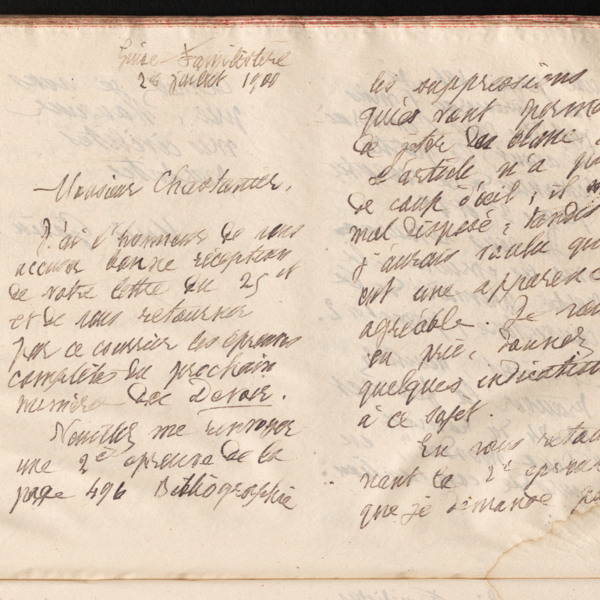 Guise Familistère
28 Juillet 1900
Monsieur Chastanier,
J'ai l'honneur de vous
accuser bonne réception
de votre lettre du 25 ct
et de vous retourner
par ce courrier les épreuves
complètes du prochain
numéro du Devoir.
Veuillez me renvoyer
une 2e épreuve de la
page 496 Bibliographie
les suppressions
qui vont
de du blanc
L'article n'a
de coup d'œil; il
mal disposé; tandis
j'aurais voulu
eut une apparence
agréable. Je
en prie, donner
quelques indications
à ce sujet.
En vous
nant la 2e
que je demande